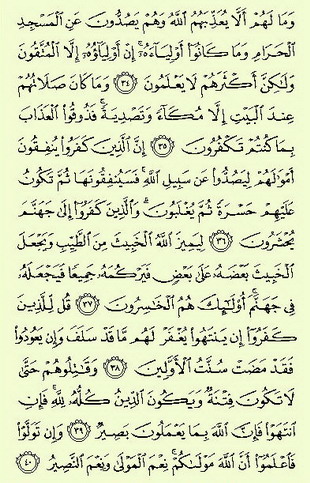 وَمَا لَهُمْ أَلَّا يُعَذِّبَهُمُ ٱللَّهُ وَهُمْ يَصُدُّونَ عَنِ ٱلْمَسْجِدِ
ٱلْحَرَامِ وَمَا كَانُوٓا۟ أَوْلِيَآءَهُۥٓ إِنْ أَوْلِيَآؤُهُۥٓ إِلَّا ٱلْمُتَّقُونَ
وَلَٰكِنَّ أَكْثَرَهُمْ لَا يَعْلَمُونَ ٣٤ وَمَا كَانَ صَلَاتُهُمْ
عِندَ ٱلْبَيْتِ إِلَّا مُكَآءً وَتَصْدِيَةً ۚ فَذُوقُوا۟ ٱلْعَذَابَ
بِمَا كُنتُمْ تَكْفُرُونَ ٣٥ إِنَّ ٱلَّذِينَ كَفَرُوا۟ يُنفِقُونَ
أَمْوَٰلَهُمْ لِيَصُدُّوا۟ عَن سَبِيلِ ٱللَّهِ ۚ فَسَيُنفِقُونَهَا ثُمَّ تَكُونُ
عَلَيْهِمْ حَسْرَةً ثُمَّ يُغْلَبُونَ ۗ وَٱلَّذِينَ كَفَرُوٓا۟ إِلَىٰ جَهَنَّمَ
يُحْشَرُونَ ٣٦ لِيَمِيزَ ٱللَّهُ ٱلْخَبِيثَ مِنَ ٱلطَّيِّبِ وَيَجْعَلَ
ٱلْخَبِيثَ بَعْضَهُۥ عَلَىٰ بَعْضٍ فَيَرْكُمَهُۥ جَمِيعًا فَيَجْعَلَهُۥ
فِى جَهَنَّمَ ۚ أُو۟لَٰٓئِكَ هُمُ ٱلْخَٰسِرُونَ ٣٧ قُل لِّلَّذِينَ
كَفَرُوٓا۟ إِن يَنتَهُوا۟ يُغْفَرْ لَهُم مَّا قَدْ سَلَفَ وَإِن يَعُودُوا۟
فَقَدْ مَضَتْ سُنَّتُ ٱلْأَوَّلِينَ ٣٨ وَقَٰتِلُوهُمْ حَتَّىٰ
لَا تَكُونَ فِتْنَةٌ وَيَكُونَ ٱلدِّينُ كُلُّهُۥ لِلَّهِ ۚ فَإِنِ
ٱنتَهَوْا۟ فَإِنَّ ٱللَّهَ بِمَا يَعْمَلُونَ بَصِيرٌ ٣٩ وَإِن تَوَلَّوْا۟
فَٱعْلَمُوٓا۟ أَنَّ ٱللَّهَ مَوْلَىٰكُمْ ۚ نِعْمَ ٱلْمَوْلَىٰ وَنِعْمَ ٱلنَّصِيرُ ٤٠